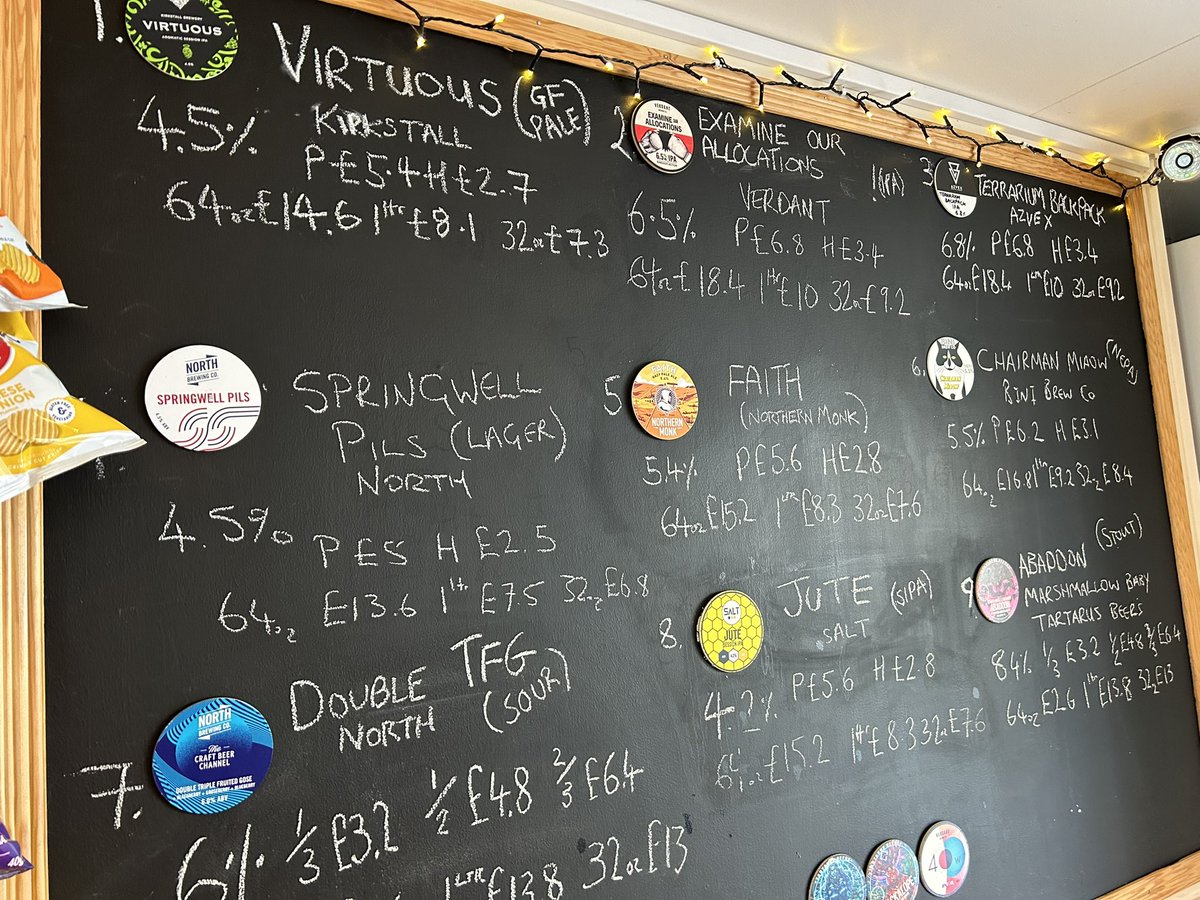 1.
KIRKSTALL BREWERY
VIRTUOUS
AROMATIC SESSION IPA
4.5%
VIRTUOUS (GF PALE)
4.5% KIRKSTALL
P-£5.4 H£2.7
64oz£14.6 1ltr£8.1 32oz£7.3
2.
VERDANT
EXAMINE OUR ALLOCATIONS
6.5% IPA
EXAMINE OUR
ALLOCATIONS (IPA)
VERDANT
6.5% P£6.8 H£3.4
64oz£18.4 1ltr£10 32oz£9.2
3
AZVEX
TERRARIUM BACKPACK
IPA
TERRARIUM BACKPACK
AZVEX
6.8% P£6.8 H£3.4
64oz£18.4 1ltr£10 32oz£9.2
NORTH
BREWING CO.
SPRINGWELL PILS
SPRINGWELL
PILS (LAGER)
NORTH
4.5% P£5 H £2.5
64oz £13.6 1ltr £7.5 32oz £6.8
5.
FAITH
NORTHERN
MONK
FAITH
(NORTHERN MONK)
5.4% P£5.6 H£2.8
64oz£15.2 1LTR£8.3 32oz£7.6
6.
CHAIRMAN MIAOW (NEPA)
BINI BREW CO
5.5% P£6.2 H£3.1
64oz £16.8 1ltr £9.2 32oz £8.4
7.
NORTH
BREWING CO.
The
CRAFT BEER
CHANNEL
DOUBLE TRIPLE FRUITED GOSE
BLACKBERRY + GOOSEBERRY + BLUEBERRY
6.0% ABV
DOUBLE TFG
NORTH (SOUR)
6% 1/3 £3.2 1/2 £4.8 2/3 £6.4
1LTR £13.8 32oz £13
8.
SALT
JUTE
SESSION IPA
JUTE (SIPA)
SALT
4.2% P£5.6 H£2.8
64oz £15.2 1ltr £8.3 32oz £7.6
9.
ABADDON (STOUT)
MARSHMALLOW BABY
TARTARUS BEERS
8.4% 1/3 £3.2 1/2 £4.8 2/3 £6.4
64oz £26 1ltr £13.8 32oz £13